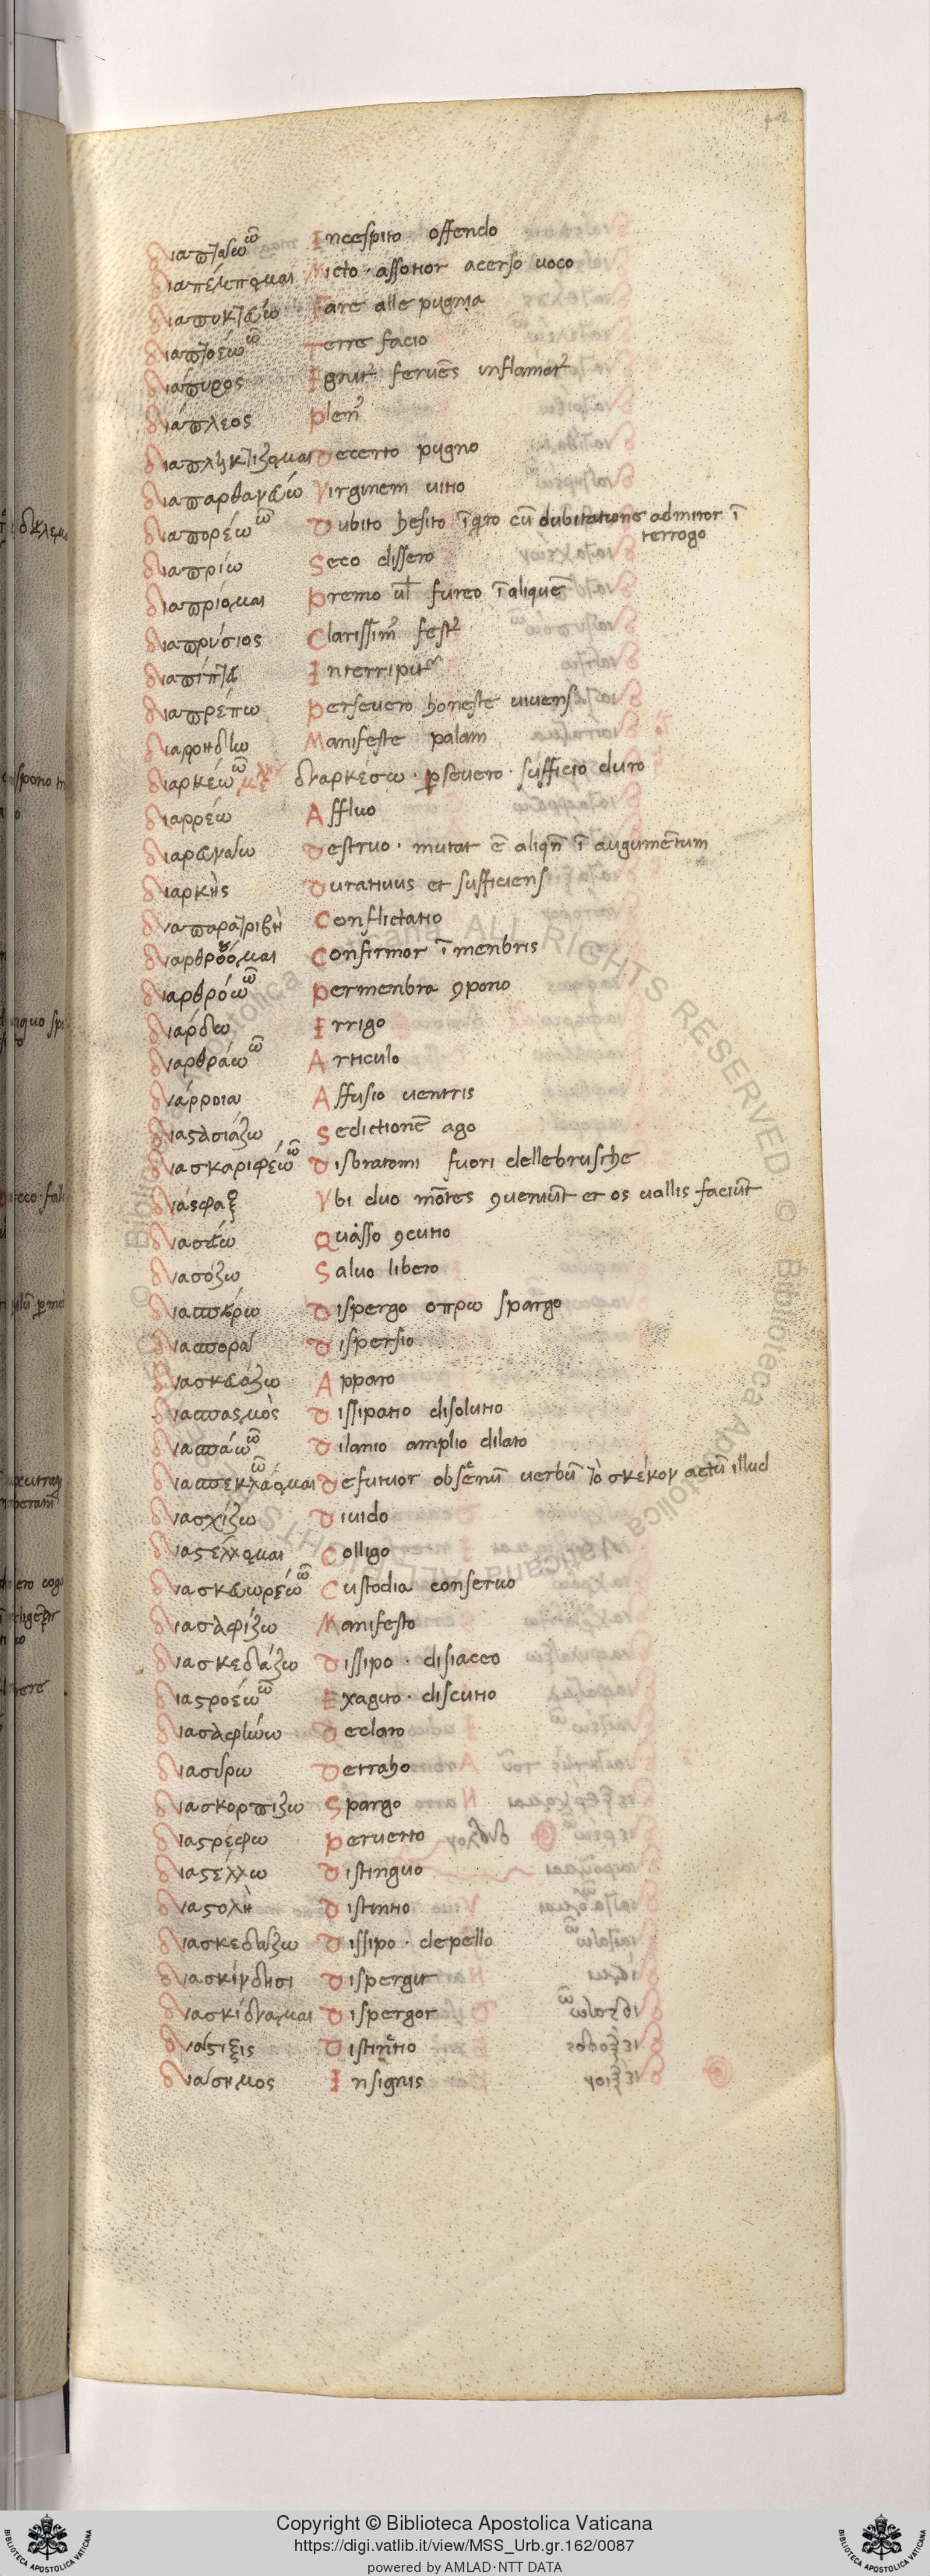 διαπταίω ῶ Incespito offendo
διαπέμπομαι Micto · assotior acerso uoco
διαπυκτεύω Fare alle pugnia
διαπτοέω ῶ Terre facio
διάπυρος Ignitꝰ feruēs inflamatꝰ
διάπλεος Plenꝰ
διαπληκτίζομαι Decerto pugno
διαπαρθανεύω Virginem uitio
διαπορέω ῶ Dubito hesito īq̄ro cū dubitatione admiror ī
terrogo
διαπρίω Seco dissero
διαπρίομαι Premo uł fureo ī aliquē
διαπρύσιος Clarissimꝰ festꝰ
διαπίπτει Interripitᷣ
διαπρέπω Perseuero honeste uiuens
διαρρήδην Manifeste palam
διαρκέω ῶ διαρκέσω · ꝑseuero · sufficio duro
διαρρέω Affluo
διαραίνω Destruo · mutat ē aliqn̄ ī augumētum
διαρκὴς Duratiuus et sufficiens
διαπαρατριβὴ Conflictatio
διαρθρόομαι Confirmor ī menbris
διαρθρόω ῶ Permenbra ꝯpono
διαρδω Irrigo
διαρθράω ῶ Articulo
διάρροια Affusio uentris
διαστασιάζω Sedictionē ago
διασκαριφέω ῶ Disbratomi fuori dellebrusche
διάσφαξ Vbi duo mōtes ꝯueniūt et os uallis faciūt
διασείω Quasso ꝯcutio
διασόζω Saluo libero
διασπείρω Dispergo οπρω spargo
διασπορα Dispersio
διασκευάζω Apparo
διασπασμὸς Dissipatio disolutio
διασπάω ῶ Dilanio amplio dilato
διασπεκλάομαι ῶ Defutuor obscenū uerbū τὸ σπέκον actū illud
διασχίζω Diuido
διαστέλλομαι Colligo
διασκευωρέω ῶ Custodia conseruo
διασαφίζω Manifesto
διασκεδάζω Dissipo · disiacco
διαστροέω ῶ Exagito · discutio
διασαφηνίω Declaro
διασύρω Detraho
διασκορπιζω Spargo
διαστρέφω Peruerto
διαστέλλω Distinguo
διαστολὴ Distintio
διασκεδαίζω Dissipo · depello
διασκίνδησι Dispergit
διασκίδναμαι Dispergor
διάστιξις Distinctio
διάσημος Insignis
Copyright © Biblioteca Apostolica Vaticana
https://digi.vatlib.it/view/MSS_Urb.gr.162/0087
powered by AMLAD·NTT DATA